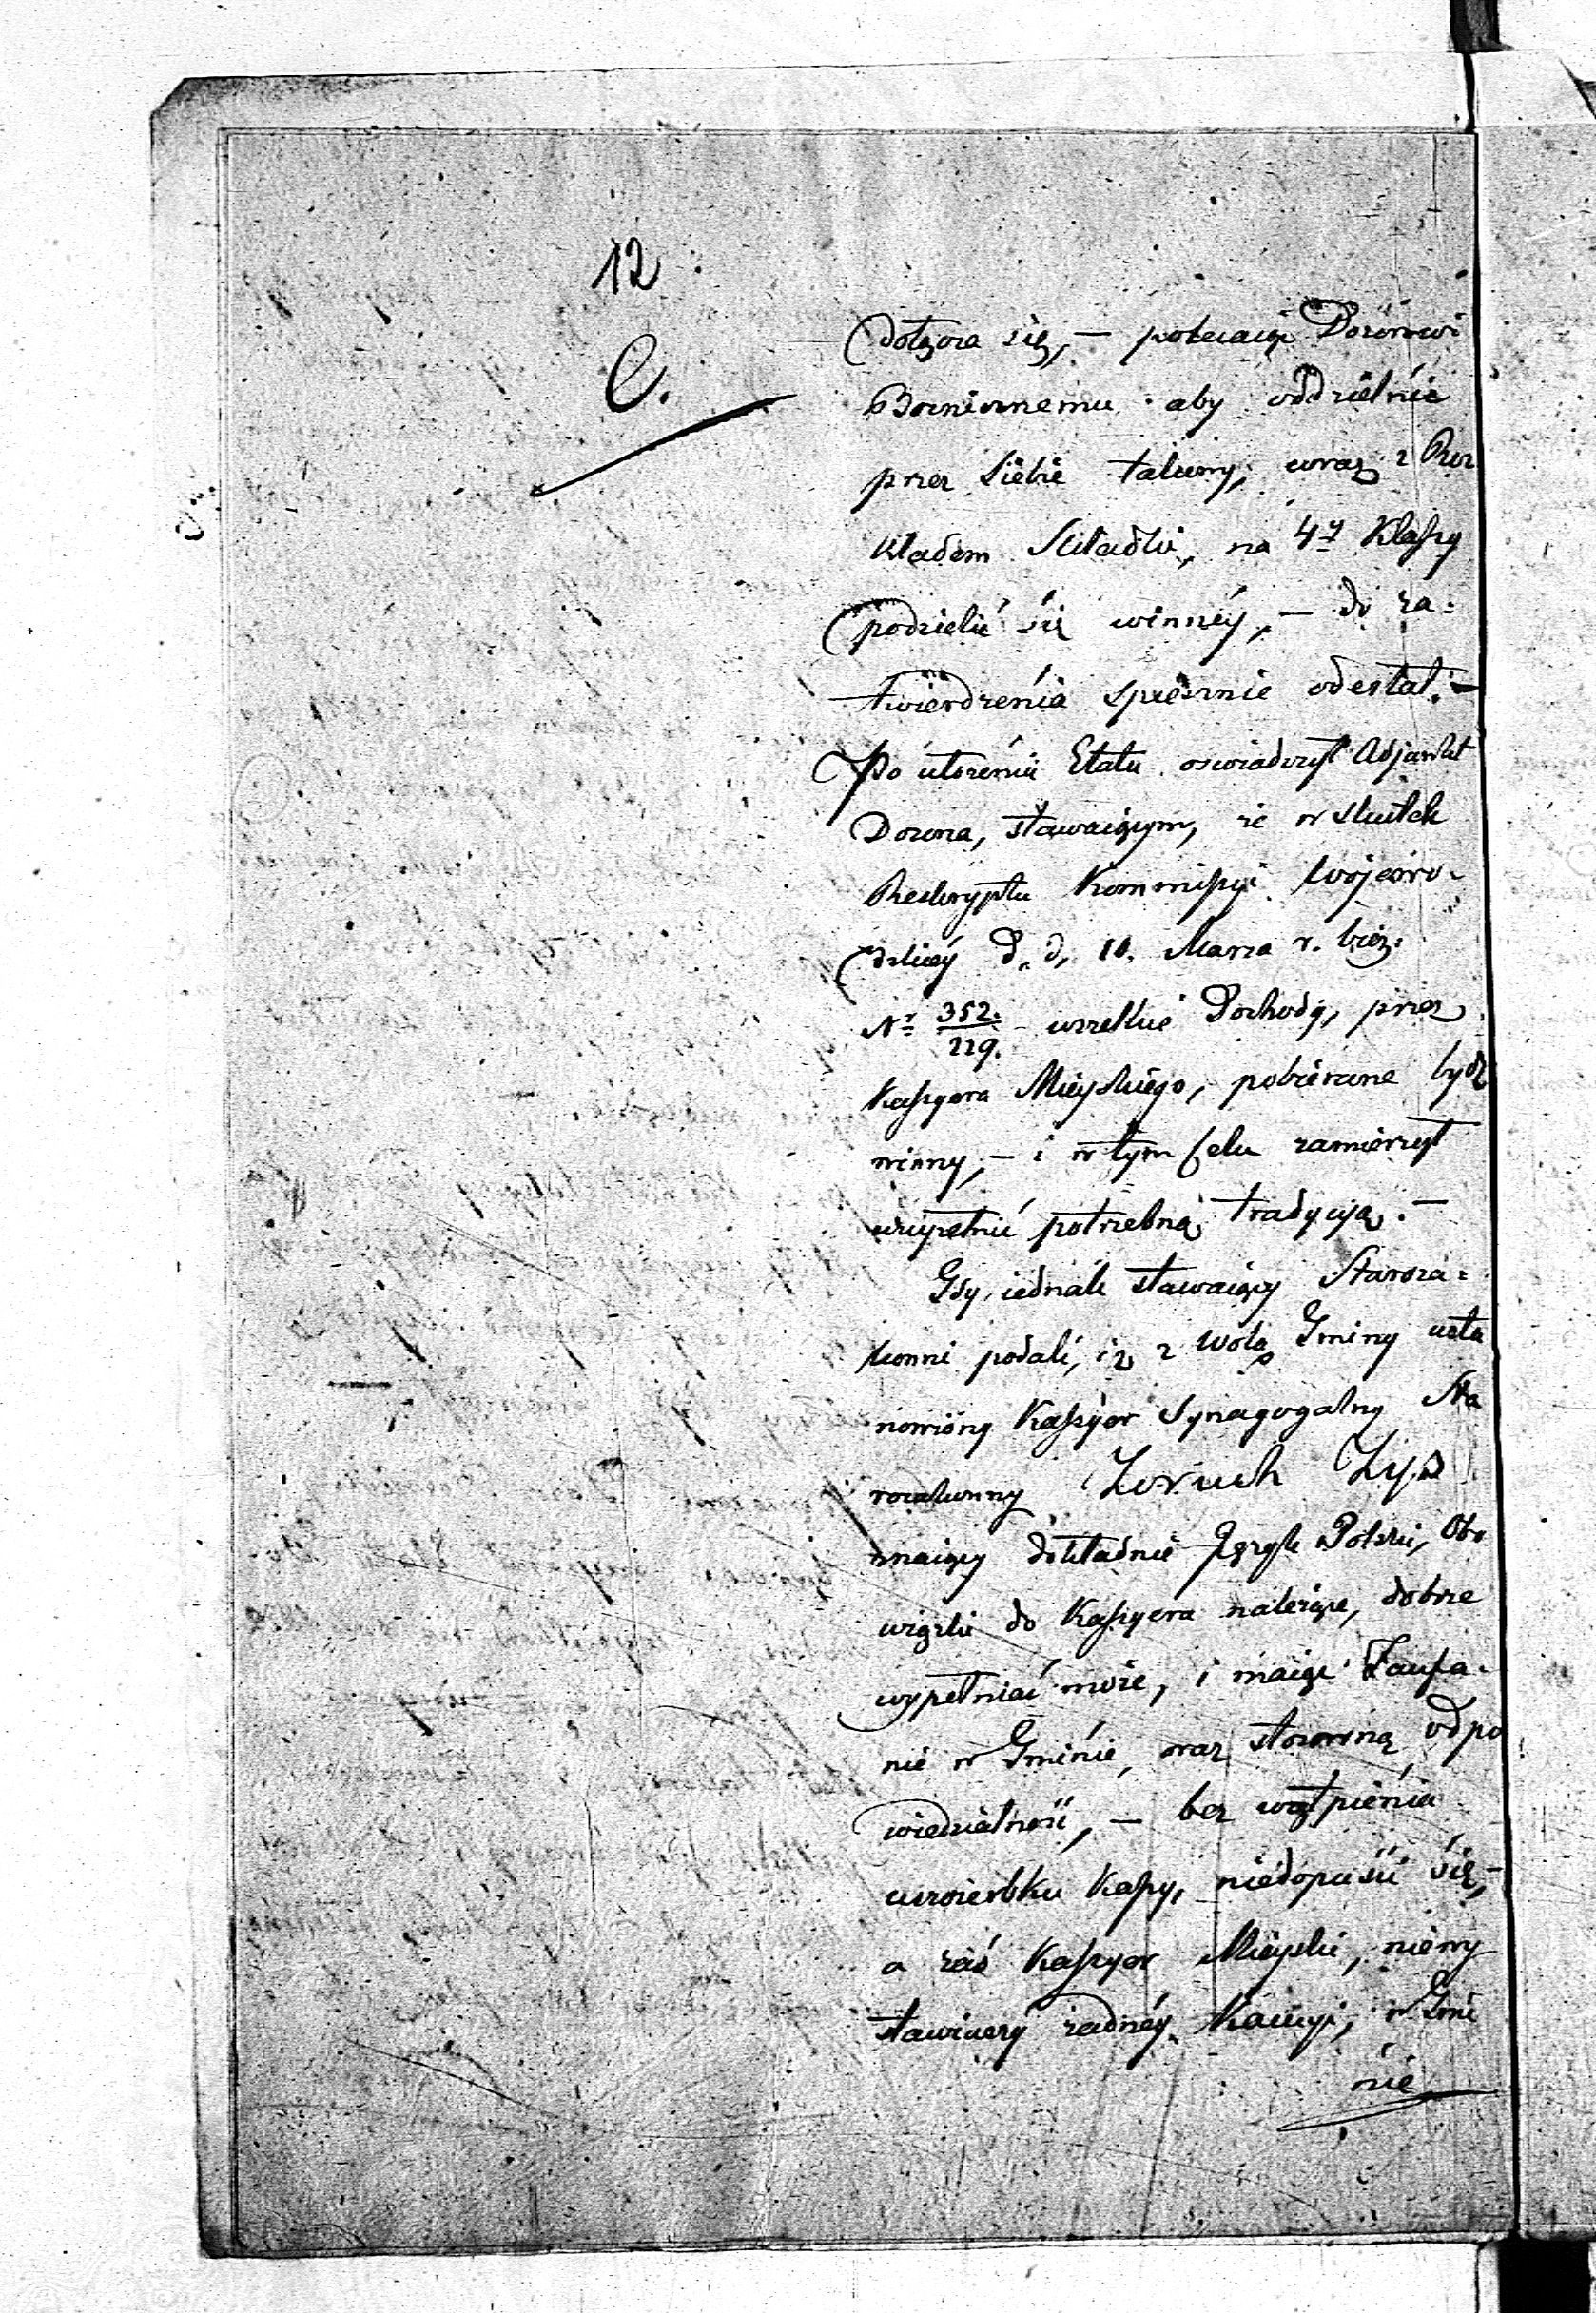 12
C.
dołącza się, — polecaiąc Dozorowi
Bożnicznemu aby oddzielnie
przez siebie takowy, wraz z Roz
kładem Składki, na 4y Klassy
podzielić się winnéy, — do za=
twierdzenia spiesznie odesłał. —
Po utożeniu Etatu oswiadczył Adjunkt
Dozoru, stawaiącym, że w skutek
Reskryptu Kommissyi Wojewo=
dzkiey d. d. 10. Marca r. bież:
Nr 352./229. wszelkie Dochody, przez
Kassyera Mieyskiego, pobierane bydź
winny, — i w tym celu zamierzył
uzupełnić potrzebną tradycyą. —
Gdy iednak stawaiący Staroza=
konni podali, iż z wolą Gminy usta
nowiony Kassyer Synagogalny Sta
rozakonny Zoruch Zyss
znaiący dokładnie Język Polski, Obo
wiązki do Kassyera należące, dobrze
wypełniać może, i maiąc Zaufa=
nie w Gminie, oraz stosowną odpo
wiedzialność, — bez wątpienia
uszczerbku Kassy, niedopuści się, —
a zaś Kassyer Mieyski, niewy
stawiwszy żadnéy Kaucyi, w Gmi
nie